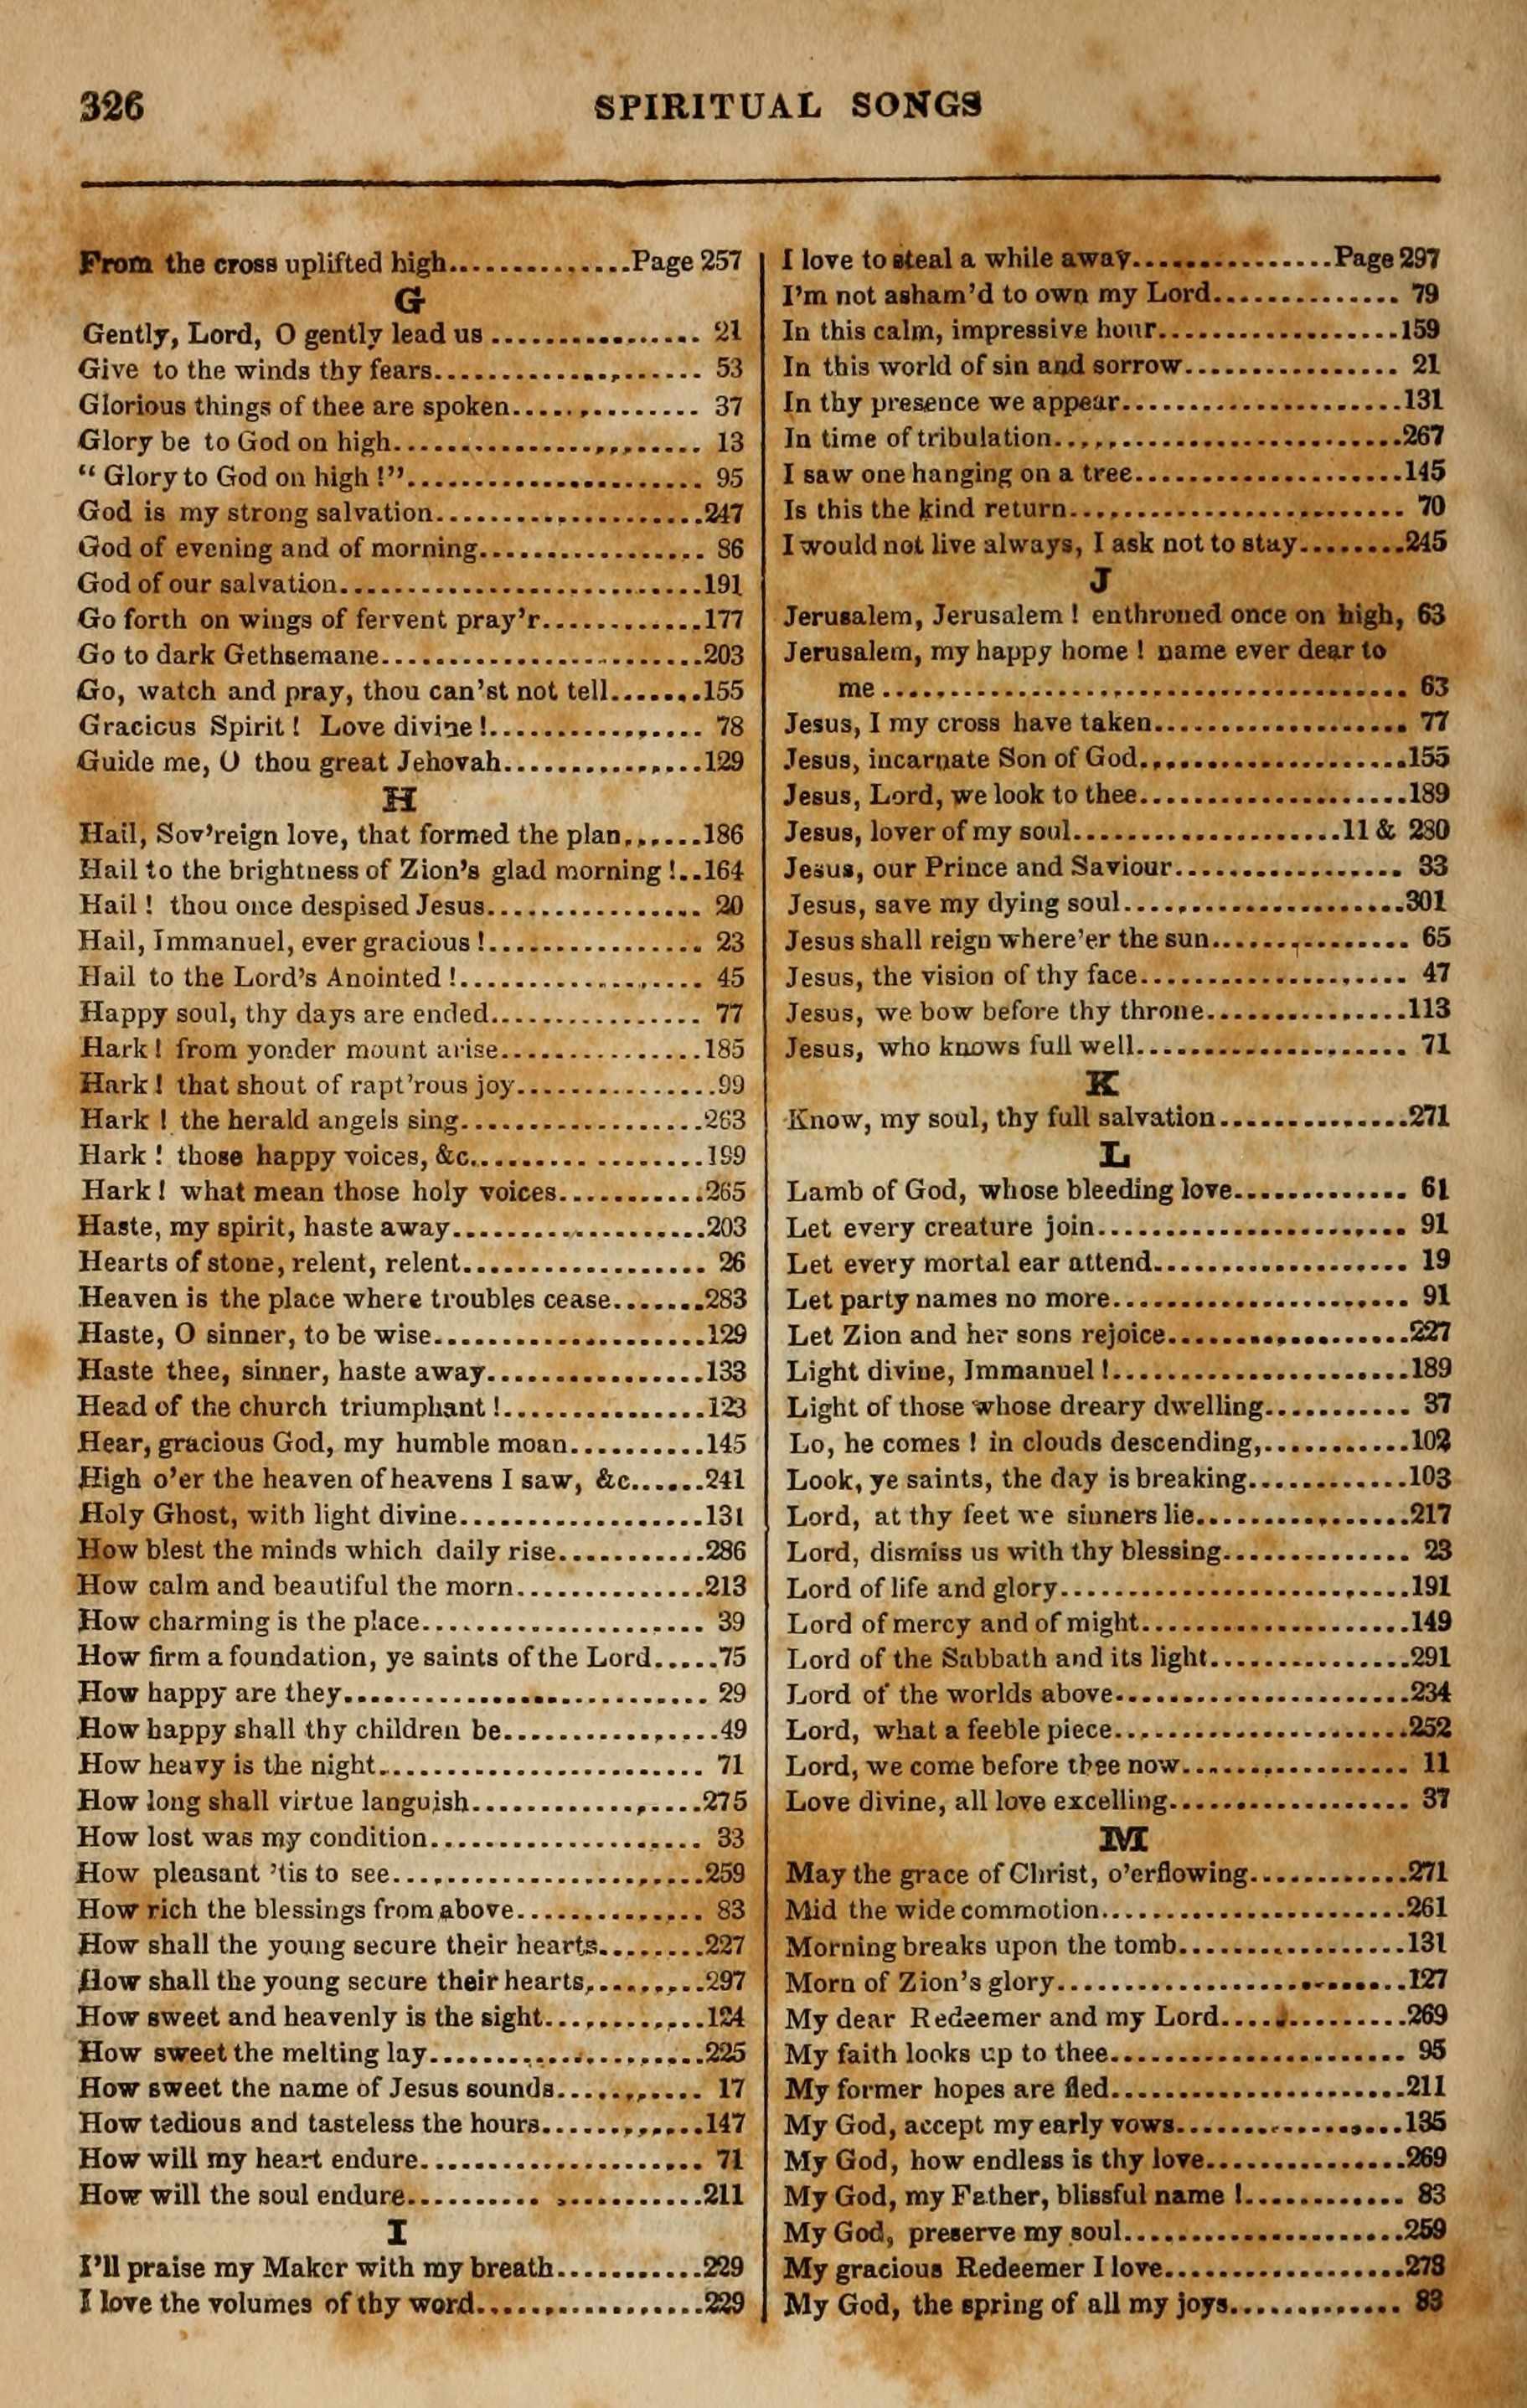 326 SPIRITUAL SONGS
From the cross uplifted high...............Page 257
G
Gently, Lord, O gently lead us ................ 21
Give to the winds thy fears.................... 53
Glorious things of thee are spoken.............. 37
Glory be to God on high....................... 13
" Glory to God on high !"...................... 95
God is my strong salvation....................247
God of evening and of morning................. 86
God of our salvation...........................191
Go forth on wings of fervent pray'r............177
Go to dark Gethsemane........................203
Go, watch and pray, thou can'st not tell.......155
Gracious Spirit ! Love divine !................ 78
Guide me, O thou great Jehovah...............129
H
Hail, Sov'reign love, that formed the plan......186
Hail to the brightness of Zion's glad morning !..164
Hail ! thou once despised Jesus................ 20
Hail, Immanuel, ever gracious !................ 23
Hail to the Lord's Anointed !.................. 45
Happy soul, thy days are ended................ 77
Hark ! from yonder mount arise...............185
Hark ! that shout of rapt'rous joy...............99
Hark ! the herald angels sing..................263
Hark ! those happy voices, &c.................199
Hark ! what mean those holy voices...........265
Haste, my spirit, haste away...................203
Hearts of stone, relent, relent.................. 26
Heaven is the place where troubles cease.......283
Haste, O sinner, to be wise....................129
Haste thee, sinner, haste away................133
Head of the church triumphant !...............123
Hear, gracious God, my humble moan..........145
High o'er the heaven of heavens I saw, &c......241
Holy Ghost, with light divine..................131
How blest the minds which daily rise...........286
How calm and beautiful the morn..............213
How charming is the place..................... 39
How firm a foundation, ye saints of the Lord.....75
How happy are they........................... 29
How happy shall thy children be................49
How heavy is the night........................ 71
How long shall virtue languish.................275
How lost was my condition.................... 33
How pleasant 'tis to see.......................259
How rich the blessings from above.............. 83
How shall the young secure their hearts........227
How shall the young secure their hearts,........297
How sweet and heavenly is the sight............124
How sweet the melting lay.....................225
How sweet the name of Jesus sounds........... 17
How tedious and tasteless the hours............147
How will my heart endure..................... 71
How will the soul endure......................211
I
I'll praise my Maker with my breath...........229
I love the volumes of thy word.................229
I love to steal a while away...............Page 297
I'm not asham'd to own my Lord.............. 79
In this calm, impressive hour..................159
In this world of sin and sorrow................ 21
In thy presence we appear.....................131
In time of tribulation..........................267
I saw one hanging on a tree....................145
Is this the kind return......................... 70
I would not live always, I ask not to stay........245
J
Jerusalem, Jerusalem ! enthroned once on high, 63
Jerusalem, my happy home ! name ever dear to
me....................................... 63
Jesus, I my cross have taken................... 77
Jesus, incarnate Son of God....................155
Jesus, Lord, we look to thee....................189
Jesus, lover of my soul....................11 & 280
Jesus, our Prince and Saviour................. 33
Jesus, save my dying soul.....................301
Jesus shall reign where'er the sun............... 65
Jesus, the vision of thy face.................... 47
Jesus, we bow before thy throne...............113
Jesus, who knows full well.................... 71
K
Know, my soul, thy full salvation..............271
L
Lamb of God, whose bleeding love............. 61
Let every creature join....................... 91
Let every mortal ear attend................... 19
Let party names no more...................... 91
Let Zion and her sons rejoice..................227
Light divine, Immanuel !......................189
Light of those whose dreary dwelling........... 37
Lo, he comes ! in clouds descending,...........102
Look, ye saints, the day is breaking............103
Lord, at thy feet we sinners lie................217
Lord, dismiss us with thy blessing.............. 23
Lord of life and glory..........................191
Lord of mercy and of might....................149
Lord of the Sabbath and its light...............291
Lord of the worlds above......................234
Lord, what a feeble piece......................252
Lord, we come before thee now................. 11
Love divine, all love excelling.................. 37
M
May the grace of Christ, o'erflowing............271
Mid the wide commotion.......................261
Morning breaks upon the tomb.................131
Morn of Zion's glory..........................127
My dear Redeemer and my Lord..............269
My faith looks up to thee...................... 95
My former hopes are fled......................211
My God, accept my early vows.................135
My God, how endless is thy love...............269
My God, my Father, blissful name !............ 83
My God, preserve my soul.....................259
My gracious Redeemer I love..................273
My God, the spring of all my joys............. 83